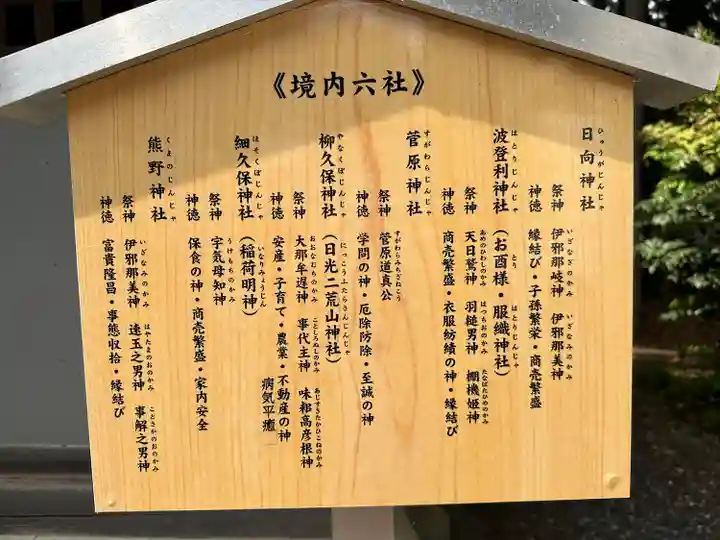 《境内六社》
日向神社
ひゅうがじんじゃ
祭神 伊邪那岐神 伊邪那美神
いざなぎのかみ いざなみのかみ
神徳 縁結び・子孫繁栄・商売繁盛
波登利神社(お酉様・服織神社)
はとりじんじゃ とり はとりじんじゃ
祭神 天日鷲神 羽槌男神 棚機姫神
あめのひわしのかみ はつちおのかみ たなばたひめのかみ
神徳 商売繁盛・衣服紡績の神・縁結び
菅原神社
すがわらじんじゃ
祭神 菅原道真公
すがわらみちざねこう
神徳 学問の神・厄除防除・至誠の神
柳久保神社(日光二荒山神社)
やなくぼじんじゃ にっこうふたらさんじんじゃ
祭神 大那牟遅神 事代主神 味耜高彦根神
おおなむちのかみ ことしろぬしのかみ あじすきたかひこねのかみ
神徳 安産・子育て・農業・不動産の神
病気平癒
細久保神社(稲荷明神)
ほそくぼじんじゃ いなりみょうじん
祭神 宇気母知神
うけもちのかみ
神徳 保食の神・商売繁盛・家内安全
熊野神社
くまのじんじゃ
祭神 伊邪那美神 速玉之男神 事解之男神
いざなみのかみ はやたまのおのかみ ことさかのおのかみ
神徳 富貴隆昌・事態収拾・縁結び